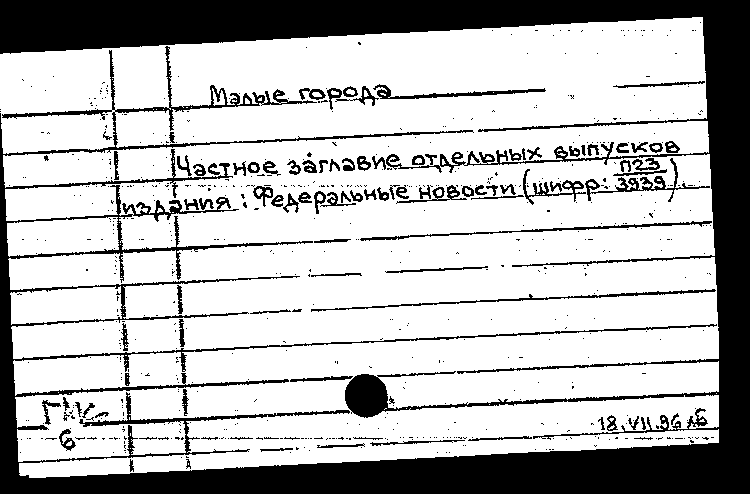 Малые города
Частное заглавие отдельных выпусков
издания : Федеральные новости (шифр: П23/3939).
18.VII.96 лБ
ГМК
6